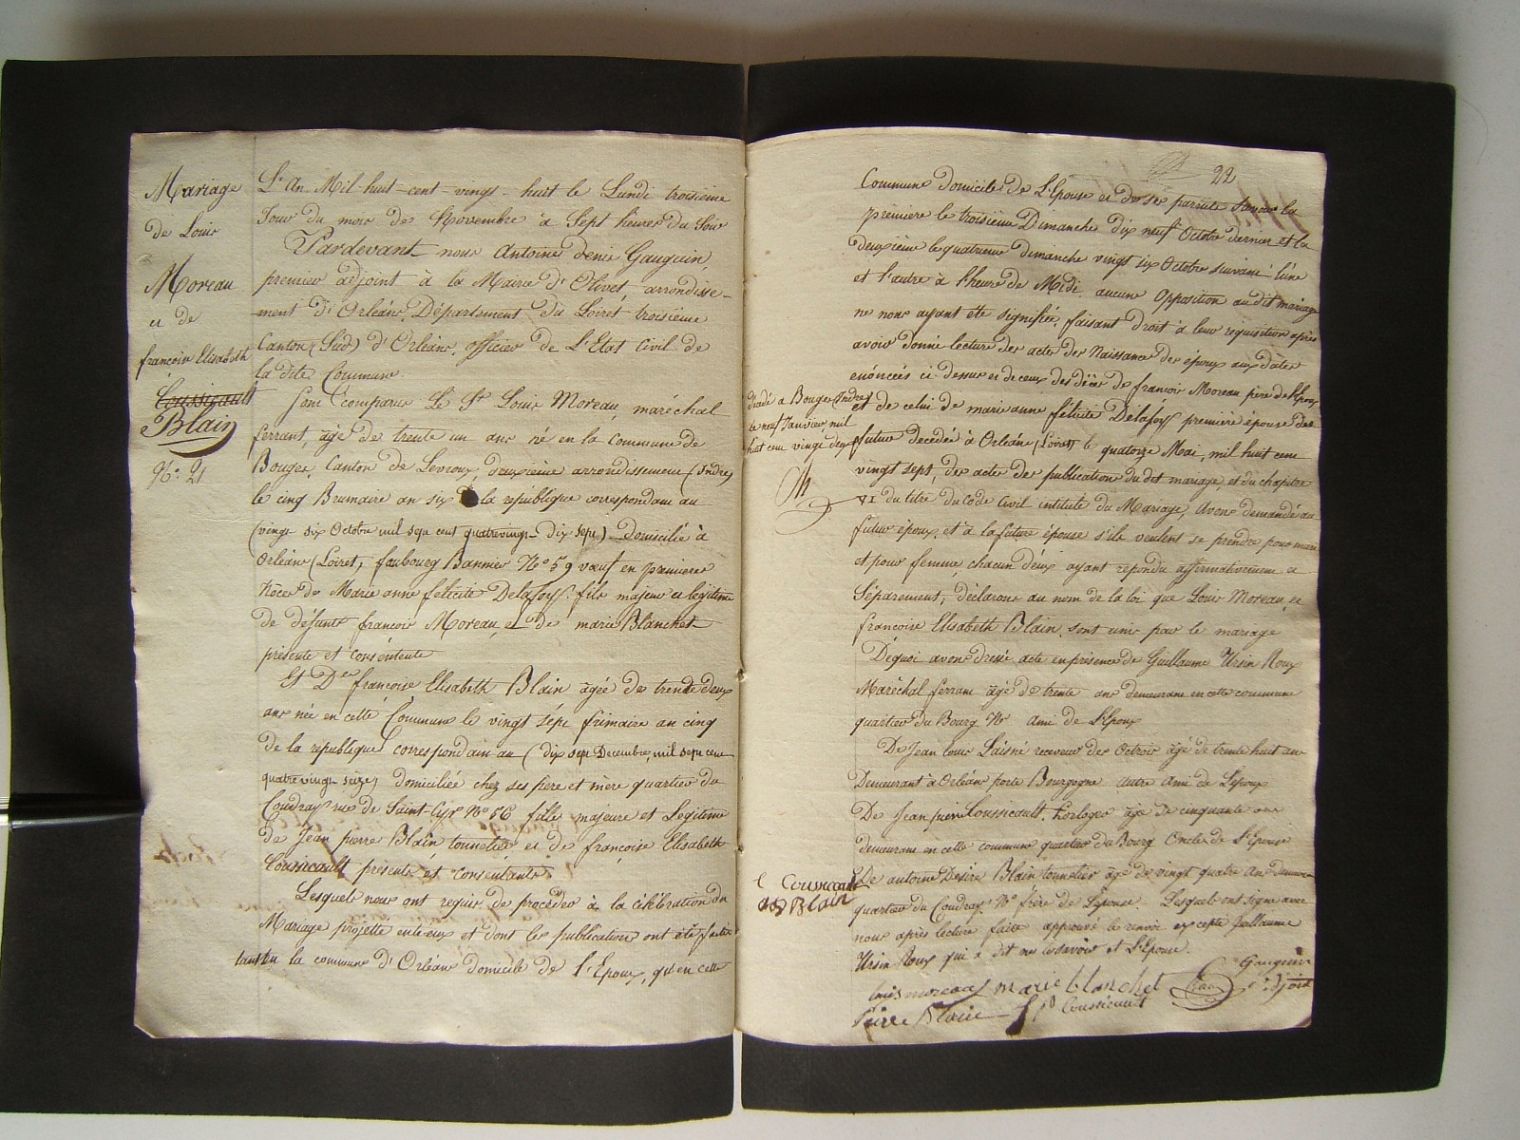 Mariage
de Louis
Moreau
et de
françoise Elisabeth
Coussicault
Blain
No. 21
L'An Mil-huit-cent-vingt-huit le Lundi troisieme
Jour du mois de Novembre à Sept heures du Soir
Pardevant nous Antoine Denis Gauguin,
premier adjoint à la Mairie d'Olivet arrondisse-
ment d'Orléans, Département du Loiret troisième
Canton (Sud) d'Orléans, officier de L'Etat Civil de
la dite Commune.
Sont comparus Le Sr. Louis Moreau maréchal
ferrant, âgé de trente un ans né en la commune de
Bouges, Canton de Levroux, deuxième arrondissement (Indre)
le cinq Brumaire an six de la république correspondant au
(vingt six Octobre mil sept cent quatrevingt dix sept) Domicilié à
Orléans (Loiret) faubourg Bannier No 59 veuf en premieres
Nôces de Marie anne félicité Delafoss. fils majeur et légitime
de défunt françois Moreau, et de marie Blanchet
présente et consentente
Et Dlle françoise Elisabeth Blain âgée de trente deux
ans née en cette Commune le vingt sept frimaire an cinq
de la république correspondant au (dix sept Decembre, mil sept cent
quatrevingt seize) domiciliée chez ses pere et mère quartier du
Coudray rue de Saint Cyr No 56 fille majeure et Légitime
de Jean pierre Blain tonnelier et de françoise Elisabeth
Coussicault présents et consentants
Lesquels nous ont requis de procéder à la célébration du
Mariage projetté entre eux et dont les publications ont été faites
tant en la commune d'Orléans domicile de l'Epoux, qu'en cette
22
Commune domicile de L'Epouse et de ses parents savoir la
première le troisième Dimanche dix neuf Octobre dernier et la
deuxième le quatrieme dimanche vingt six Octobre suivant l'une
et l'autre à l'heure de Midi. aucune Opposition au dit mariage
ne nous ayant été signifiée, faisant droit à leur requisition après
avoir donné lecture des actes de Naissance des époux aux dates
enoncées ci-dessus et de ceux des décès de françois Moreau père de l'Epoux
décédé à Bouges (Indre)
le neuf Janvier, mil
huit cent vingt deux
et de celui de marie anne félicité Delafoss première épouse du
futur decédée à Orléans (Loiret) le quatorze Mai, mil huit cent
vingt sept, des actes de publications du dit mariage, et du chapitre
VI du titre du Code Civil intitulé du Mariage, Avons demandé au
futur époux, et à la future épouse s'ils veulent se prendre pour mari
et pour femme, chacun d'eux ayant répondu affirmativement et
Séparement, déclarons au nom de la loi que Louis Moreau, et
françoise Elisabeth Blain, sont unis par le mariage
Dequoi avons dressé acte en présence de Guillaume Ursin Roux
Maréchal ferrant âgé de trente ans demeurant en cette commune
quartier du Bourg No ami de L'Epoux
De Jean Louis Laisné receveur des Octrois âgé de trente huit ans
Demeurant à Orléans porte Bourgogne autre ami de L'epoux
De Jean pierre Coussicault, horloger âgé de cinquante ans
demeurant en cette commune quartier du Bourg Oncle de L'Epouse
De antoine Desiré Blain tonnelier âgé de vingt quatre ans demeurant
quartier du Coudray No frère de L'épouse. Lesquels ont signé avec
nous après lecture faite approuvé le renvoi excepté Guillaume
Ursin Roux qui a dit ne le savoir et L'Epouse.
Coussicault
Blain
Gauguin
adjoint
louis moreau marie blanchet
Pierre Blain
Coussicault